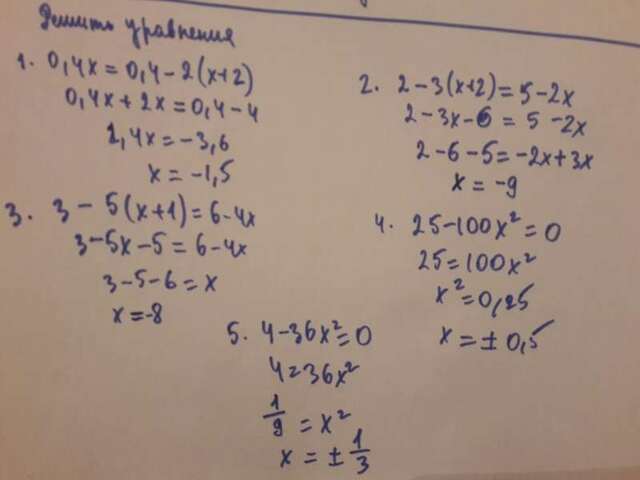 Решить уравнения
1. 0,4x = 0,4 - 2(x+2)
0,4x + 2x = 0,4 - 4
2,4x = -3,6
x = -1,5
2. 2 - 3(x+2) = 5 - 2x
2 - 3x - 6 = 5 - 2x
2 - 6 - 5 = -2x + 3x
x = -9
3. 3 - 5(x+1) = 6 - 4x
3 - 5x - 5 = 6 - 4x
3 - 5 - 6 = x
x = -8
4. 25 - 100x² = 0
25 = 100x²
x² = 0,25
x = ± 0,5
5. 4 - 36x² = 0
4 = 36x²
1/9 = x²
x = ± 1/3